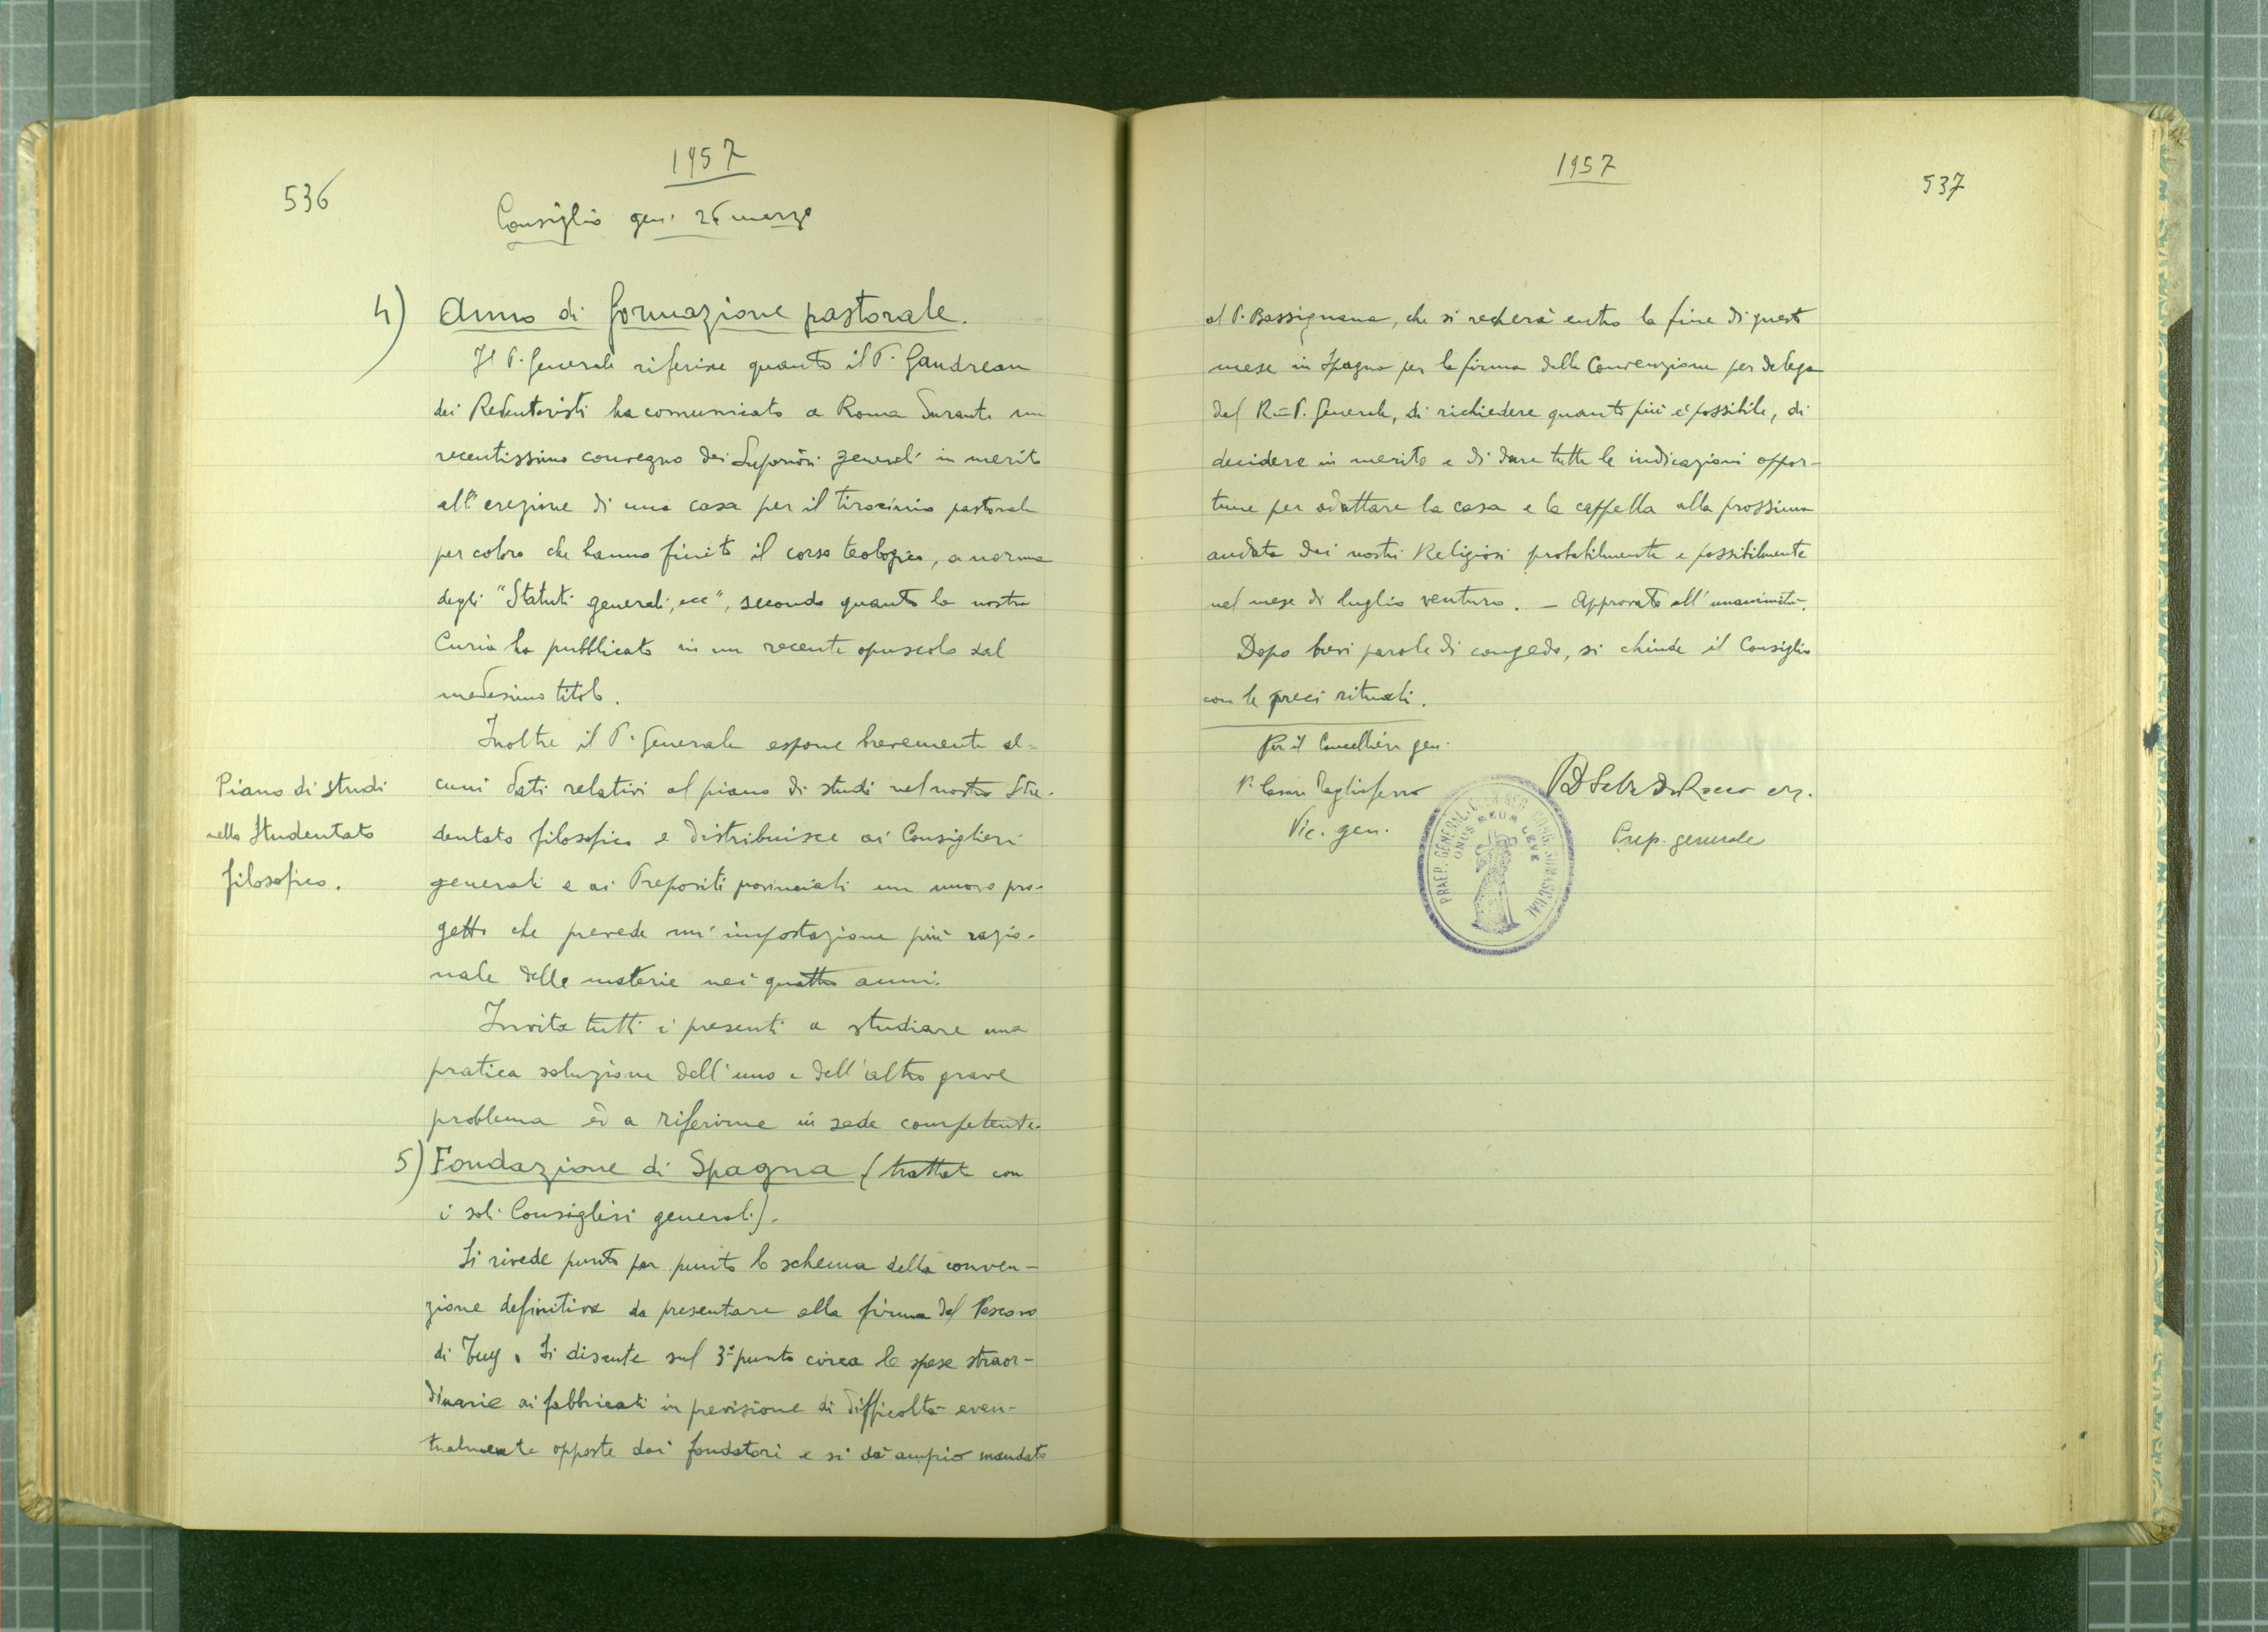 536
1957
Consiglio gen. 26 marzo
4) Anno di formazione pastorale.
Il P. Generale riferisce quanto il P. Gaudreau
dei Redentoristi ha comunicato a Roma durante un
recentissimo convegno dei Superiori generali in merito
all'erezione di una casa per il tirocinio pastorale
per coloro che hanno finito il corso teologico, a norma
degli "Statuti generali, ecc", secondo quanto la nostra
Curia ha pubblicato in un recente opuscolo dal
medesimo titolo.
Inoltre il P. Generale espone brevemente al-
Piano di studi
nello Studentato
filosofico.
cuni dati relativi al piano di studi nel nostro Stu-
dentato filosofico e distribuisce ai Consiglieri
generali e ai Prepositi provinciali un nuovo pro-
getto che prevede un'impostazione più razio-
nale delle materie nei quattro anni.
Invita tutti i presenti a studiare una
pratica soluzione dell'uno e dell'altro grave
problema ed a riferirne in sede competente.
5) Fondazione di Spagna (trattata con
i soli Consiglieri generali).
Si rivede punto per punto lo schema della conven-
zione definitiva da presentare alla firma del Vescovo
di Tuy. Si discute sul 3º punto circa le spese straor-
dinarie ai fabbricati in previsione di difficoltà even-
tualmente opposte dai fondatori e si dà ampio mandato
1957
537
al P. Bassignana, che si recherà entro la fine di questo
mese in Spagna per la firma della Convenzione per delega
del Rmo P. Generale, di richiedere quanto più è possibile, di
decidere in merito e di dare tutte le indicazioni oppor-
tune per adattare la casa e la cappella alla prossima
andata dei nostri Religiosi probabilmente e possibilmente
nel mese di luglio venturo. - Approvato all'unanimità.
Dopo brevi parole di congedo, si chiude il Consiglio
con le preci rituali.
Per il Cancelliere gen.
P. Cesare Tagliaferro
Vic. gen.
De Rocco crs.
Prep. generale
PRAEP. GENERAL. CONG. SOMASCHAE
ONUS MEUM LEVE